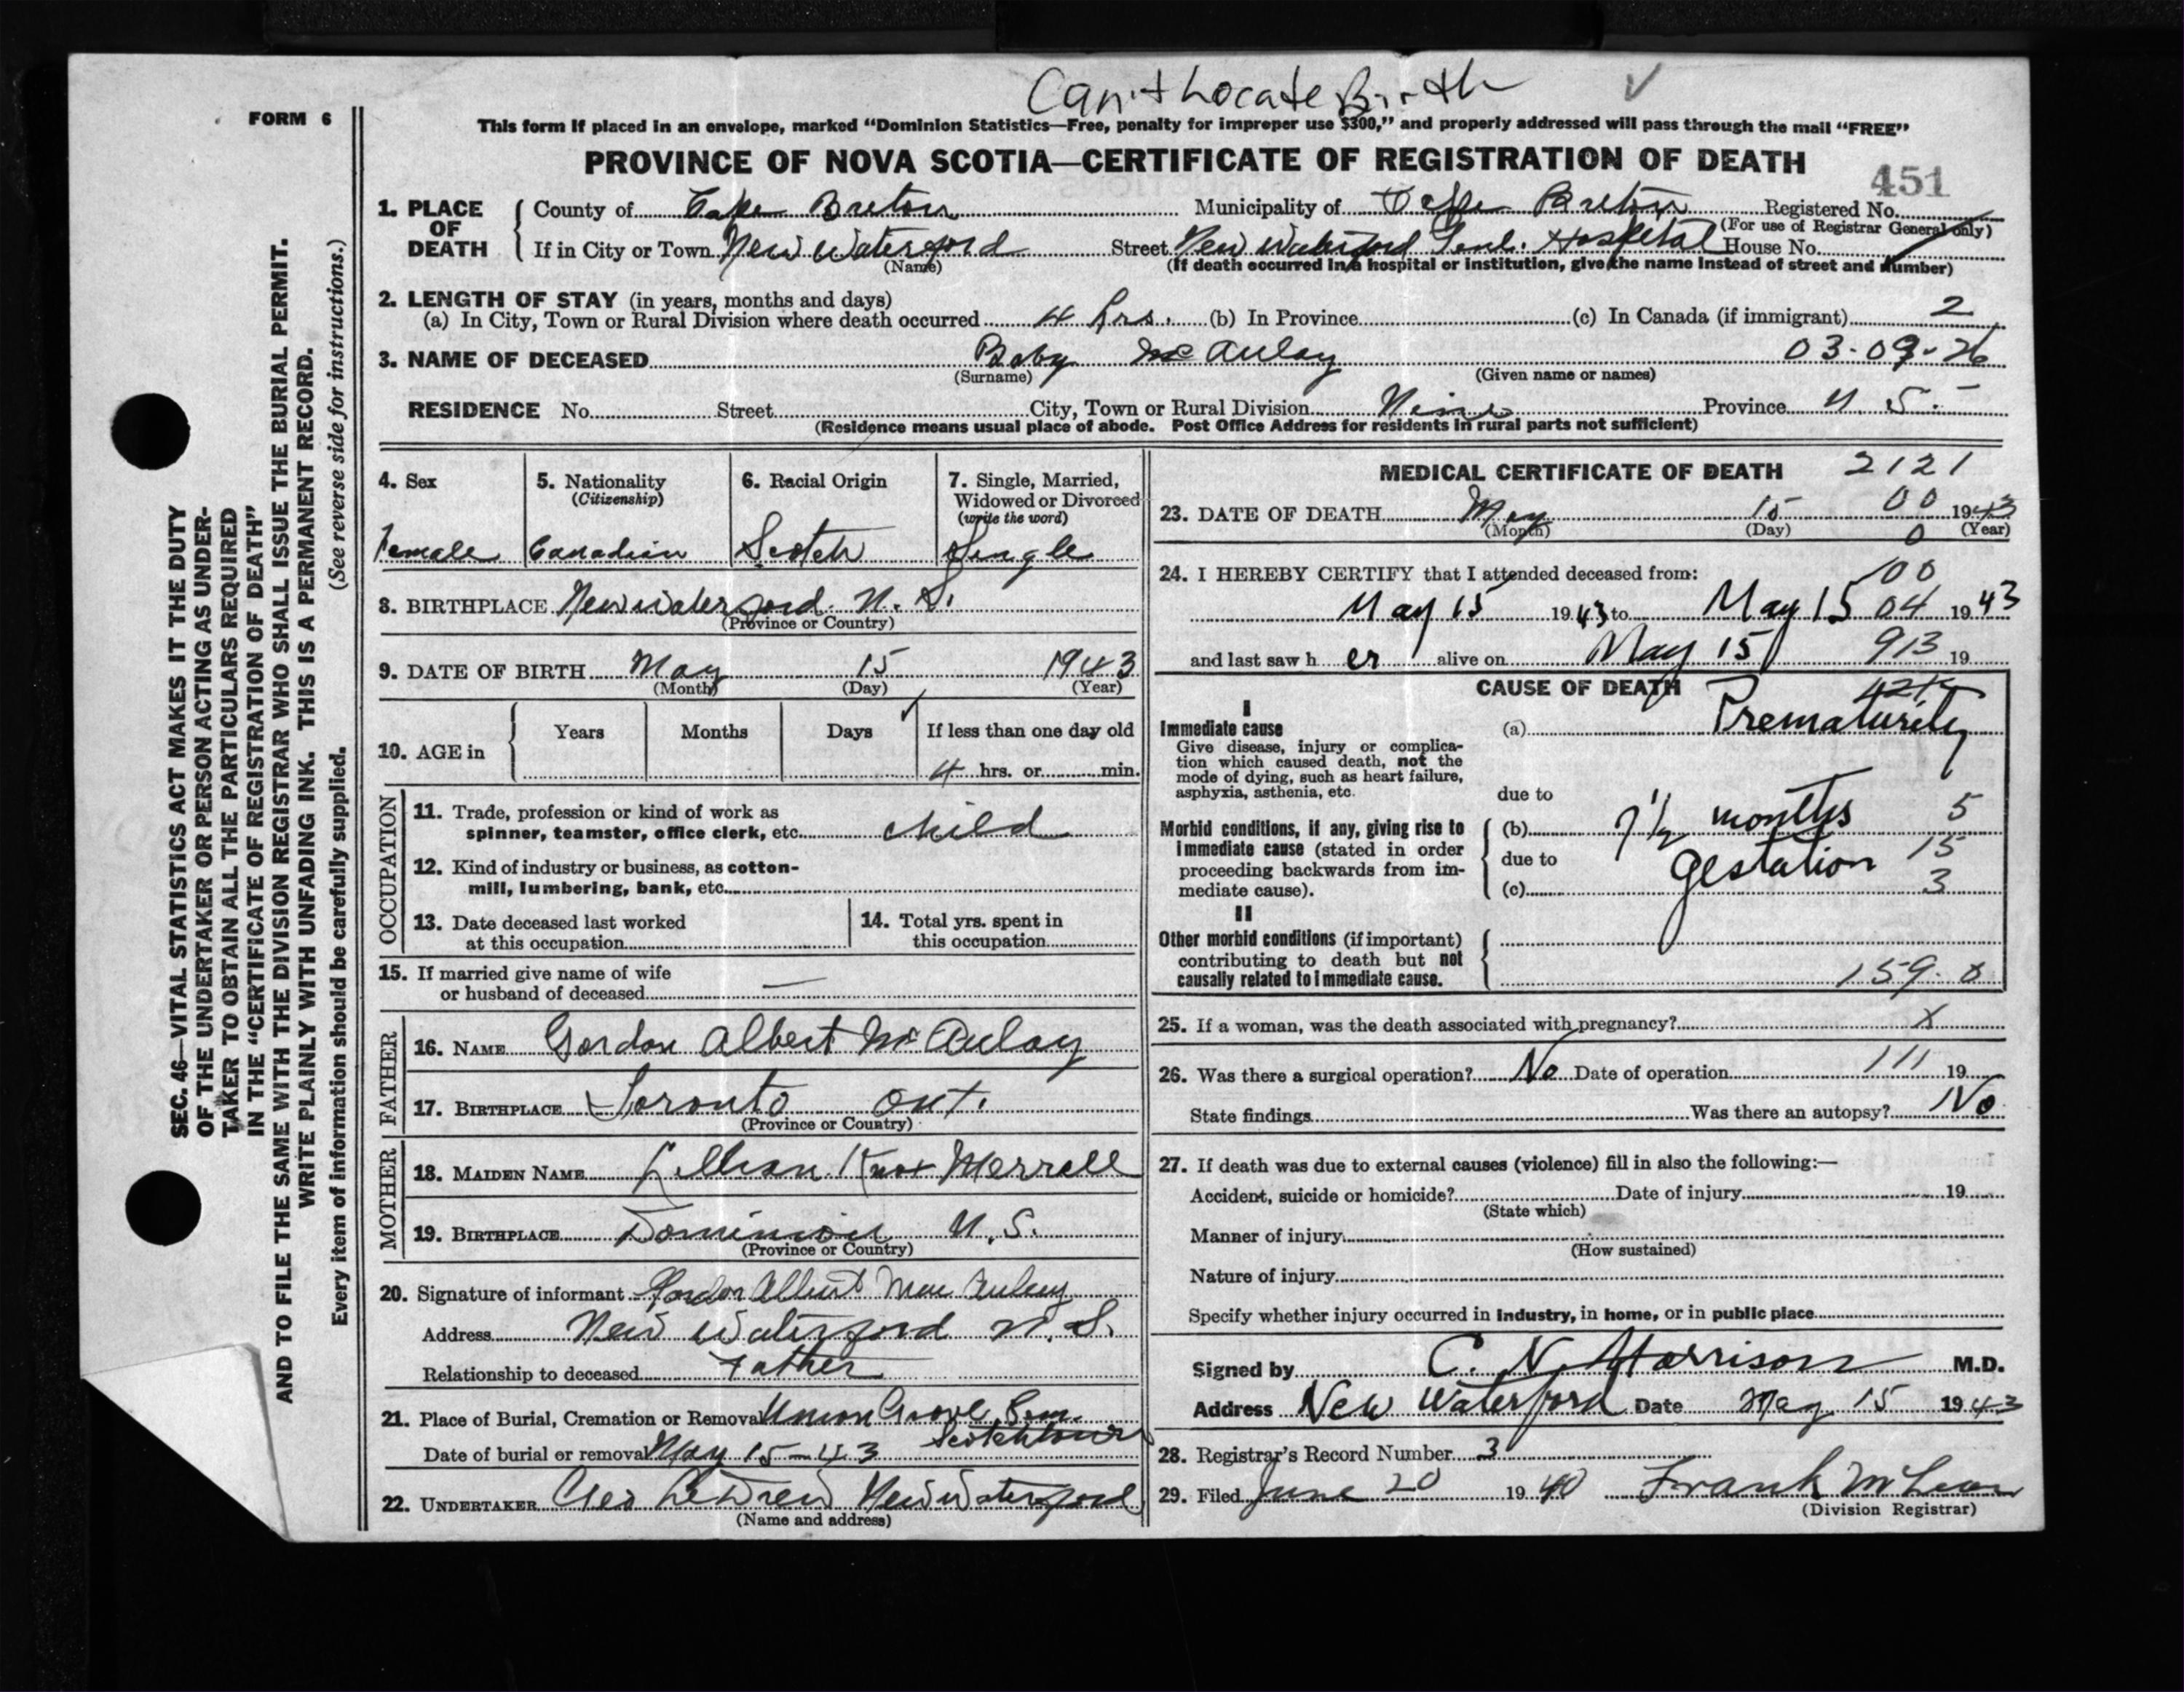 Can't Locate Birth
FORM 6
This form if placed in an envelope, marked “Dominion Statistics—Free, penalty for improper use $300,” and properly addressed will pass through the mail “FREE”
PROVINCE OF NOVA SCOTIA—CERTIFICATE OF REGISTRATION OF DEATH
451
1. PLACE OF DEATH
County of Cape Breton Municipality of Cape Breton Registered No.
(For use of Registrar General only)
If in City or Town New Waterford Street New Waterford Genl. Hospital House No.
(Name) (If death occurred in a hospital or institution, give the name instead of street and number)
2. LENGTH OF STAY (in years, months and days)
(a) In City, Town or Rural Division where death occurred 4 hrs. (b) In Province (c) In Canada (if immigrant) 2
3. NAME OF DECEASED Baby McAulay 03-09-26
(Surname) (Given name or names)
RESIDENCE No. Street City, Town or Rural Division Province N.S.
(Residence means usual place of abode. Post Office Address for residents in rural parts not sufficient)
4. Sex 5. Nationality (Citizenship) 6. Racial Origin 7. Single, Married, Widowed or Divorced (write the word)
Female Canadian Scotch Single
8. BIRTHPLACE New Waterford. N.S.
(Province or Country)
9. DATE OF BIRTH May 15 1943
(Month) (Day) (Year)
10. AGE in Years Months Days If less than one day old
4 hrs. or min.
OCCUPATION
11. Trade, profession or kind of work as
spinner, teamster, office clerk, etc. child
12. Kind of industry or business, as cotton-
mill, lumbering, bank, etc.
13. Date deceased last worked
at this occupation
14. Total yrs. spent in
this occupation
15. If married give name of wife
or husband of deceased —
FATHER
16. NAME Gordon Albert McAulay
17. BIRTHPLACE Toronto Ont.
(Province or Country)
MOTHER
18. MAIDEN NAME Lillian Knox Merrell
19. BIRTHPLACE Dominion N.S.
(Province or Country)
20. Signature of informant Gordon Albert MacAulay
Address New Waterford N.S.
Relationship to deceased Father
21. Place of Burial, Cremation or Removal Union Grove Cem.
Scotchtown
Date of burial or removal May 15-43
22. UNDERTAKER Geo LeDrew New Waterford
(Name and address)
MEDICAL CERTIFICATE OF DEATH 2121
23. DATE OF DEATH May 15 00 1943
(Month) (Day) 0 (Year)
24. I HEREBY CERTIFY that I attended deceased from: 100
May 15 1943 to May 15 04 1943
and last saw her alive on May 15 913 19
CAUSE OF DEATH
I
Immediate cause (a) Prematurity
Give disease, injury or complica-
tion which caused death, not the
mode of dying, such as heart failure,
asphyxia, asthenia, etc.
due to
Morbid conditions, if any, giving rise to
immediate cause (stated in order
proceeding backwards from im-
mediate cause).
(b) 7 1/2 months 5
due to gestation 15
(c) 3
II
Other morbid conditions (if important)
contributing to death but not
causally related to immediate cause. 159.0
25. If a woman, was the death associated with pregnancy? X
26. Was there a surgical operation? No Date of operation 111 19
State findings Was there an autopsy? No
27. If death was due to external causes (violence) fill in also the following:—
Accident, suicide or homicide? Date of injury 19
(State which)
Manner of injury
(How sustained)
Nature of injury
Specify whether injury occurred in industry, in home, or in public place
Signed by C. N. Morrison M.D.
Address New Waterford Date May 15 1943
28. Registrar's Record Number 3
29. Filed June 20 1940 Frank McLean
(Division Registrar)
SEC. 46—VITAL STATISTICS ACT MAKES IT THE DUTY
OF THE UNDERTAKER OR PERSON ACTING AS UNDER-
TAKER TO OBTAIN ALL THE PARTICULARS REQUIRED
IN THE “CERTIFICATE OF REGISTRATION OF DEATH”
AND TO FILE THE SAME WITH THE DIVISION REGISTRAR WHO SHALL ISSUE THE BURIAL PERMIT.
WRITE PLAINLY WITH UNFADING INK. THIS IS A PERMANENT RECORD.
Every item of information should be carefully supplied. (See reverse side for instructions.)